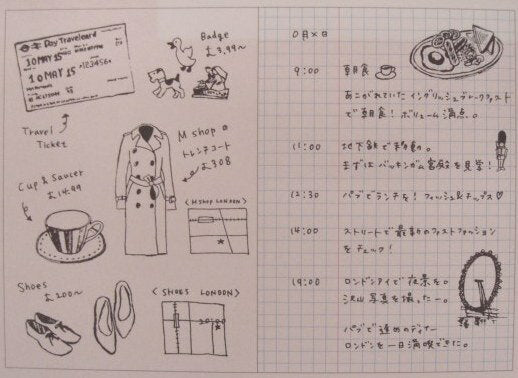 Day Travelcard
10 MAY 15
10 MAY 15
Travel
Ticket
Badge
£3,99~
M shop の
トレンチコート
£308
Cup & Saucer
£14.99
< M shop LONDON >
Shoes
£200~
< SHOES LONDON >
20:00
0月×日
9:00 朝食
あこがれていたイングリッシュブレークファスト
で朝食! ボリューム満点。
11:00 地下鉄で移動。
まずはバッキンガム宮殿を見学!
12:30 パブでランチを! フィッシュ&チップス♡
14:00 ストリートで最新のファストファッション
をチェック!
19:00 ロンドンアイで夜景を。
沢山写真を撮ったー。
パブで遅めのディナー
ロンドンを一日満喫できた。